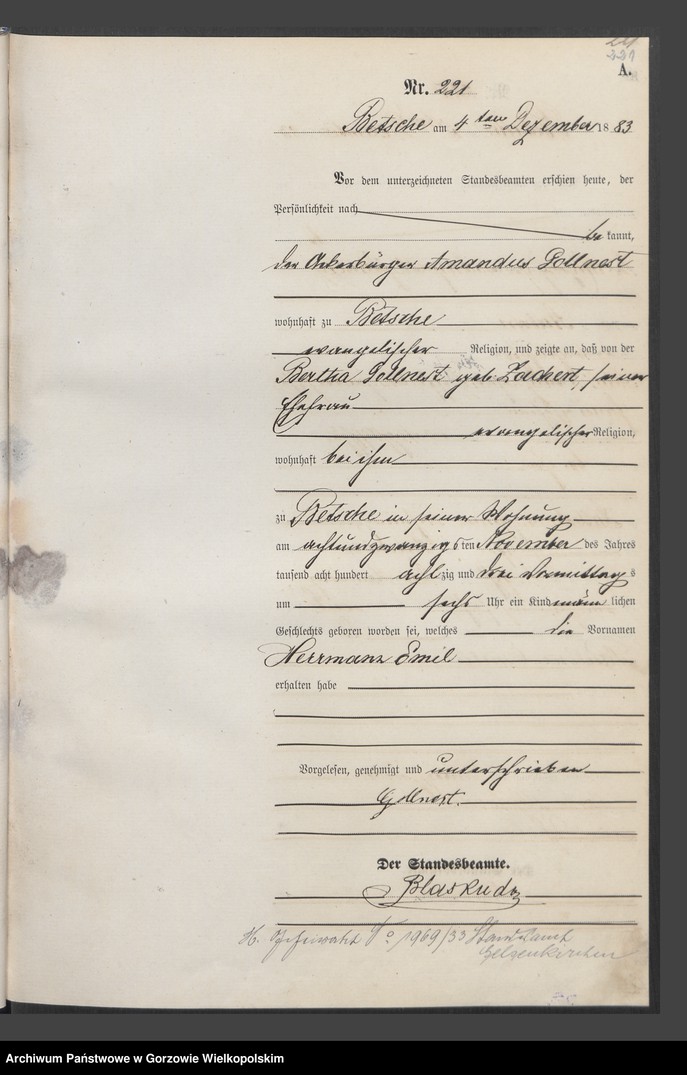 221
A.
Nr. 221
Betsche am 4 ten Dezember 18 83
Vor dem unterzeichneten Standesbeamten erschien heute, der
Persönlichkeit nach
be kannt,
der Ackerbürger Amandus Gollnest
wohnhaft zu Betsche
evangelischer Religion, und zeigte an, daß von der
Bertha Gollnest geb. Zachert, seiner
Ehefrau
evangelischer Religion,
wohnhaft bei ihm
zu Betsche in seiner Wohnung
am achtundzwanzigsten November des Jahres
tausend acht hundert achtzig und drei Vormittags
um sechs Uhr ein Kind männlichen
Geschlechts geboren worden sei, welches die Vornamen
Herrmann Emil
erhalten habe
Vorgelesen, genehmigt und unterschrieben
Gollnest.
Der Standesbeamte.
H. 1969/33 Standesamt
Gelsenkirchen
Archiwum Państwowe w Gorzowie Wielkopolskim